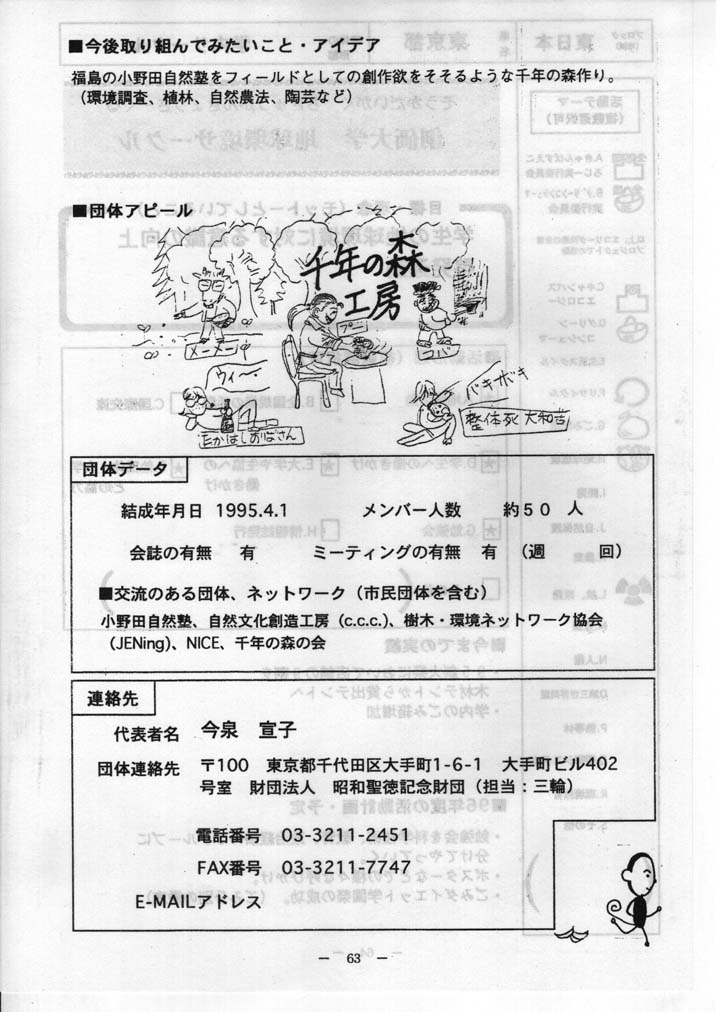 ■今後取り組んでみたいこと・アイデア
福島の小野田自然塾をフィールドとしての創作欲をそそるような千年の森作り。
（環境調査、植林、自然農法、陶芸など）
■団体アピール
千年の森
工房
メーメー
プニ
コバ
ウィ〜
バキボキ
たかはしおばさん
整体死 大和吉
団体データ
結成年月日 1995.4.1 メンバー人数 約５０ 人
会誌の有無 有 ミーティングの有無 有 （週 回）
■交流のある団体、ネットワーク（市民団体を含む）
小野田自然塾、自然文化創造工房（c.c.c.）、樹木・環境ネットワーク協会
（JENing）、NICE、千年の森の会
連絡先
代表者名 今泉 宣子
団体連絡先 〒100 東京都千代田区大手町1-6-1 大手町ビル402
号室 財団法人 昭和聖徳記念財団（担当：三輪）
電話番号 03-3211-2451
FAX番号 03-3211-7747
E-MAILアドレス
— 63 —